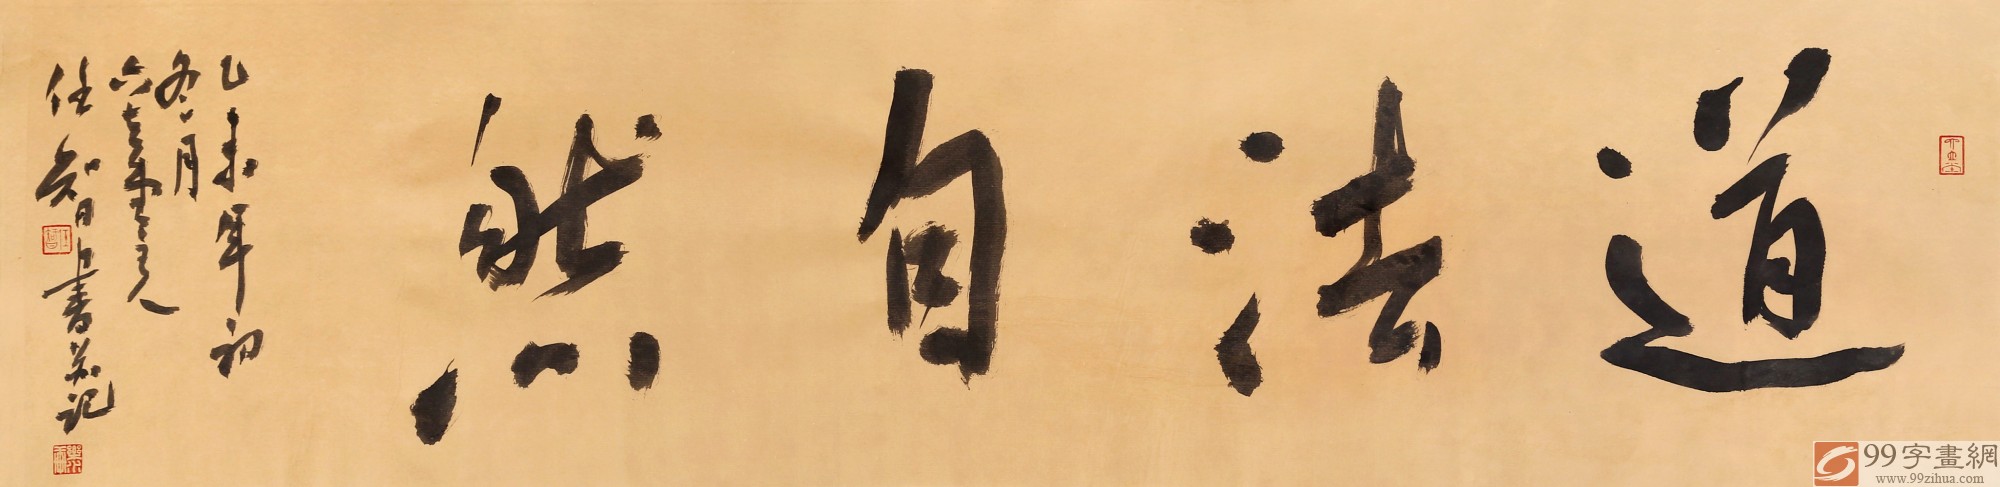 道法自然
乙未年初
冬月
六喜斋主人
任智日上书并记
99字畫網
www.99zihua.com